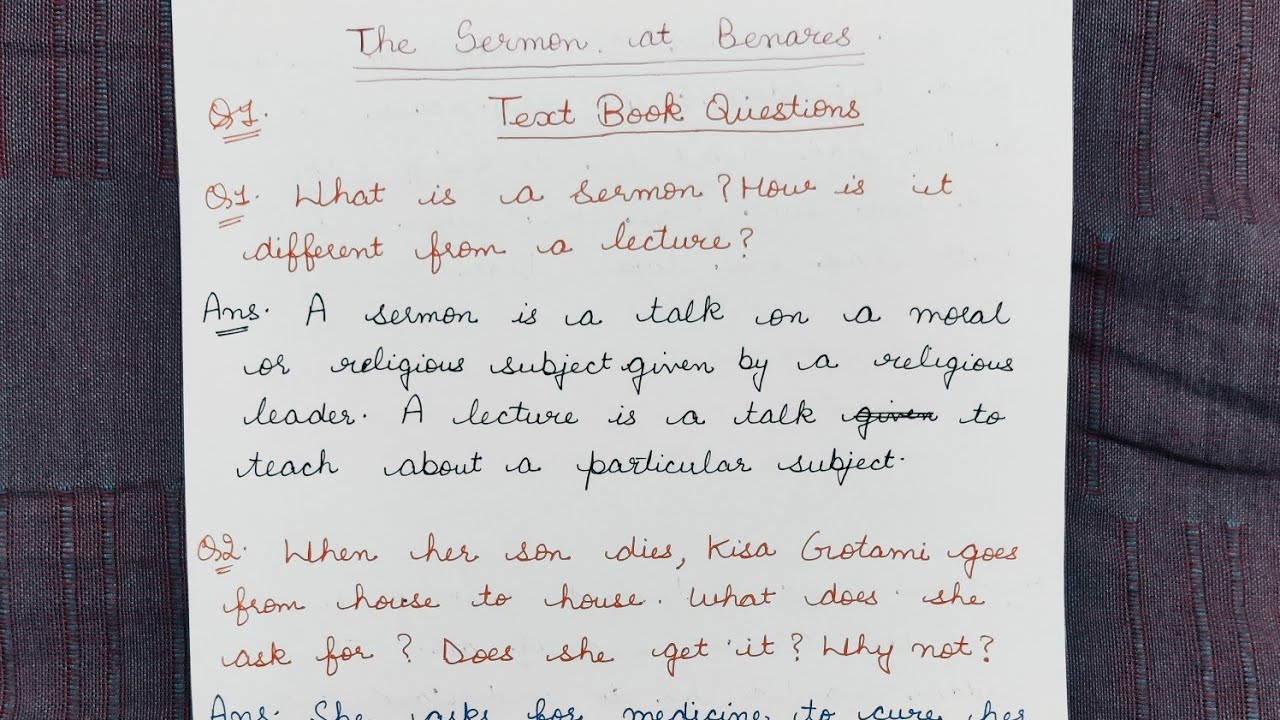 The Sermon at Benares.
Q1. Text Book Questions
Q1. What is a sermon? How is it
different from a lecture?
Ans. A sermon is a talk on a moral
or religious subject given by a religious
leader. A lecture is a talk given to
teach about a particular subject.
Q2. When her son dies, Kisa Gotami goes
from house to house. What does she
ask for? Does she get it? Why not?
Ans. She asks for medicine to cure her